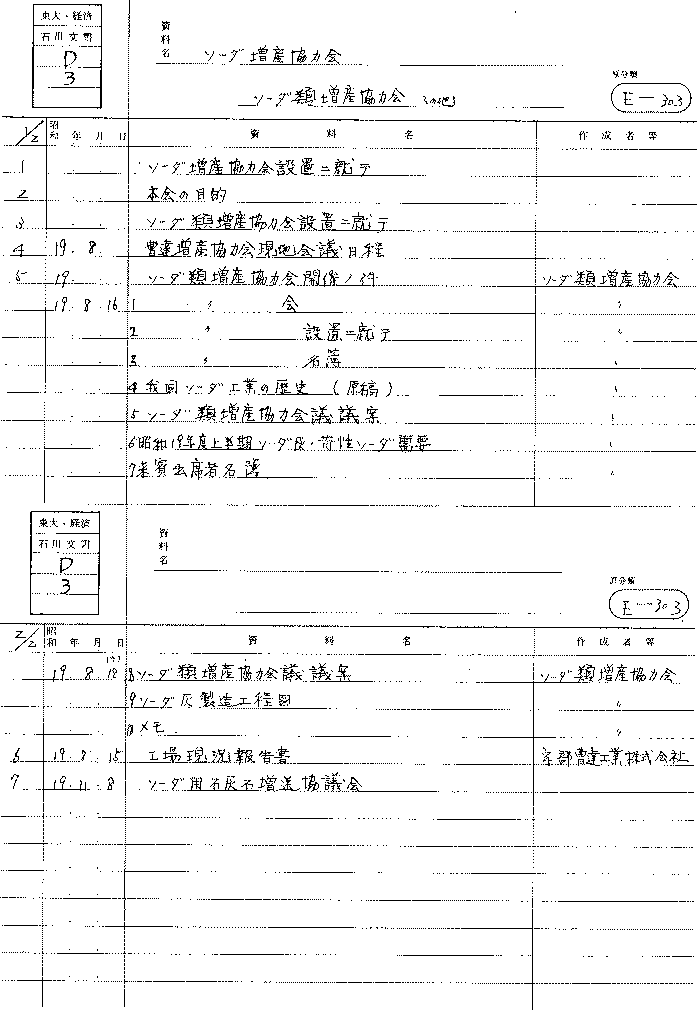 東大・経済
石川文書
D
3
資料名
ソーダ増産協力会
ソーダ類増産協力会 その他
原分類
E-303
1/2 昭和 年 月 日 資料名 作成者等
1 ソーダ増産協力会設置ニ就テ
2 本会の目的
3 ソーダ類増産協力会設置ニ就テ
4 19. 8. 曹達増産協力会現地会議日程
5 19. ソーダ類増産協力会関係ノ件 ソーダ類増産協力会
19. 8. 16 1 〃 会 〃
2 〃 設置ニ就テ 〃
3 〃 名簿 〃
4 我国ソーダ工業の歴史 (原稿) 〃
5 ソーダ類増産協力会議議案 〃
6 昭和19年度上半期ソーダ灰・苛性ソーダ需要 〃
7 来賓出席者名簿 〃
東大・経済
石川文書
D
3
資料名
原分類
E-303
2/2 昭和 年 月 日 資料名 作成者等
19. 8. 18 8 ソーダ類増産協力会議議案 ソーダ類増産協力会
9 ソーダ灰製造工程図 〃
10 メモ 〃
6 19. 8. 15 工場現況報告書 宇部曹達工業株式会社
7 19. 11. 8 ソーダ用石灰石増送協議会